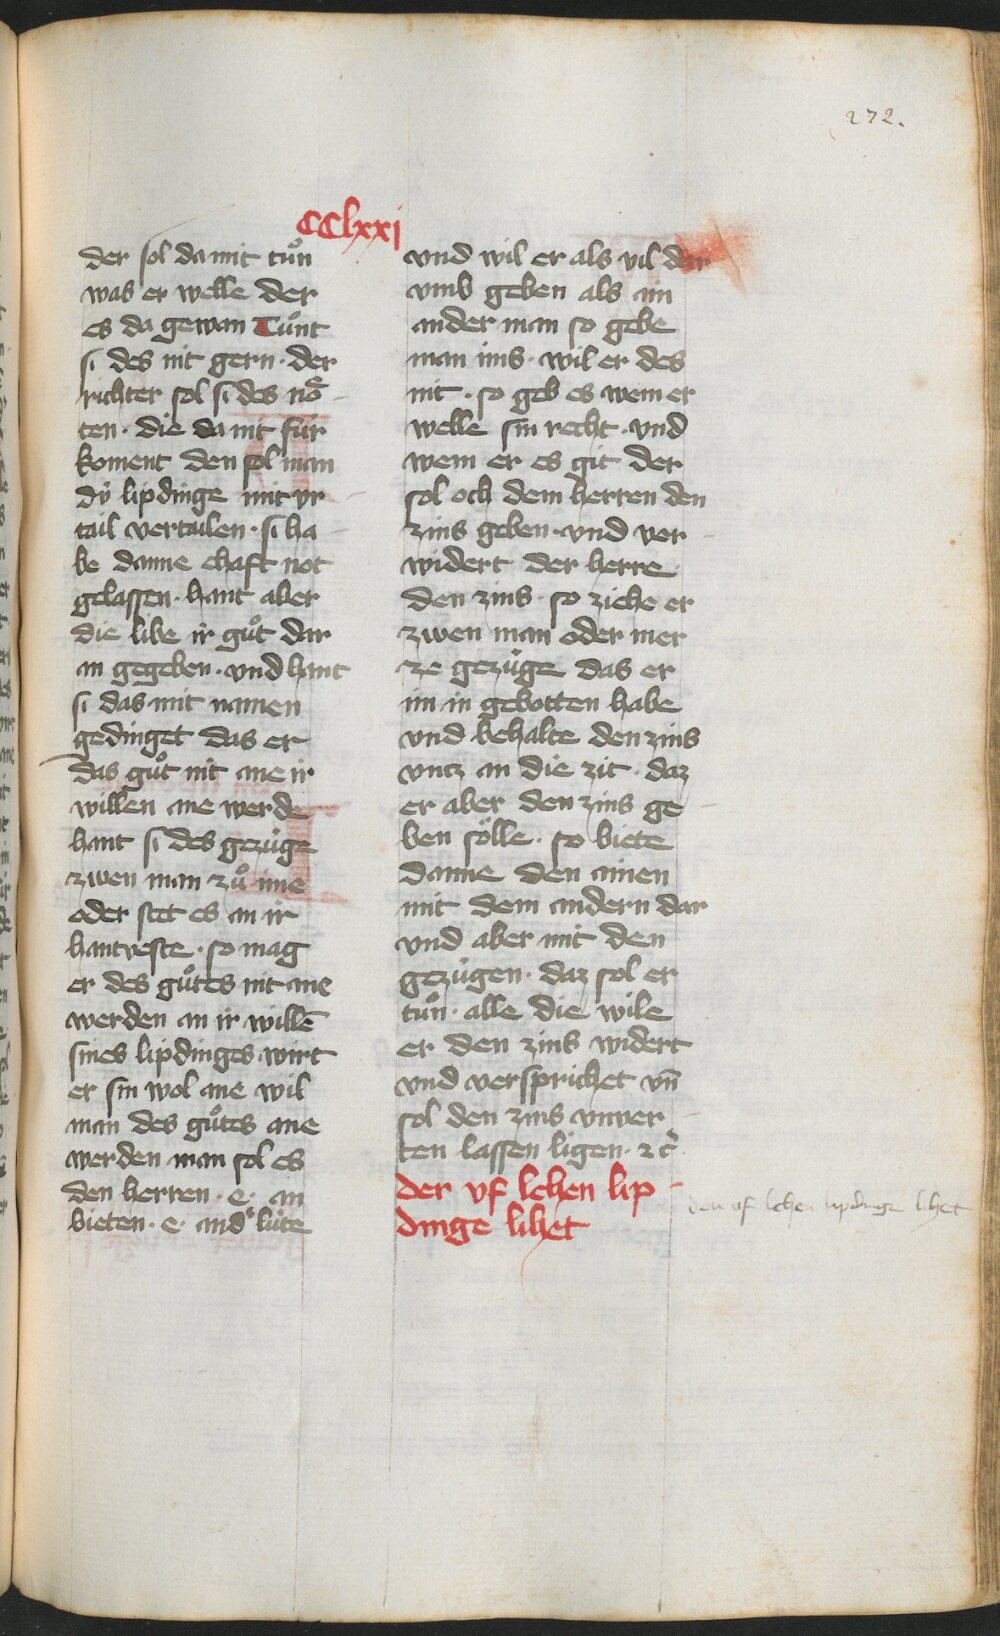 272.
CClxxj
der sol da mit tuͦn
was er welle der
es da gewan Tuͦnt
si des nit gern · der
richter sol si des noͤ
ten · die da nit fúr
koment den sol man
dú lipdinge mit vr
tail vertailen · si ha
be danne ehaft not
gelassen · hant aber
die libe ir guͦt dar
an gegeben · vnd hant
si das mit namen
gedinget das er
das guͦt nit ane ir
willen ane werde
hant si des gezúge
zwen man zuͦ ime
oder stet es an ir
hantveste · so mag
er des guͦtes nit ane
werden an ir willē
sines lipdinges wirt
er sin wol ane wil
man des guͦtes ane
werden man sol es
den herren · e · an
bieten · e · and͛ lúte
vnd wil er als vil dar
vmb geben als ain
ander man so gebe
man ims · wil er des
nit · so geb es wem er
welle sin recht · vnd
wem er es git der
sol och dem herren den
zins geben · vnd ver
widert der herre
den zins · so ziehe er
zwen man oder mer
ze gezúge das er
im in gebotten habe
vnd behalte den zins
vncz an die zit · daz
er aber den zins ge
ben soͤlle · so biete
danne den ainen
mit dem andern dar
vnd aber mit den
gezúgen · daz sol er
tuͦn · alle die wile
er den zins widert
vnd versprichet vn̄
sol den zins vnver
ten lassen ligen · ꝛc̄
der vf lehen lip
dinge lihet
den vf lehen lipdinge lihet